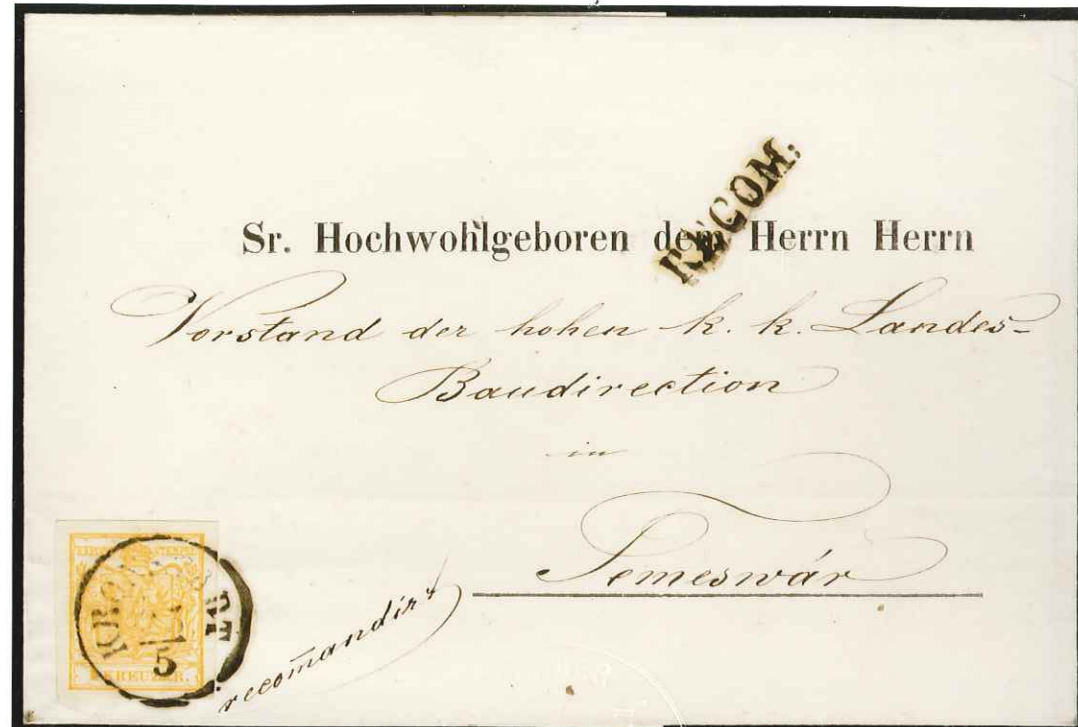 RECOM:
Sr. Hochwohlgeboren dem Herrn Herrn
Vorstand der hohen k. k. Landes-
Baudirection
in
Temeswár
recom̄andirt
KREUZER.
5